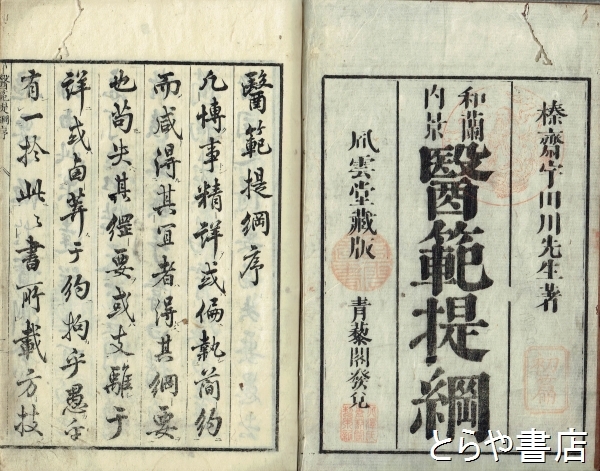 榛齋宇田川先生著
和蘭
内景
醫範提綱
風雲堂藏版
青藜閣發兌
醫範提綱序
凡博事精詳或偏執簡約
而咸得其宜者得其綱要
也苟失其經要或支離于
詳或鹵莽于約拘乎愚乎
有一於此以書所載方技
醫範提綱序
とらや書店